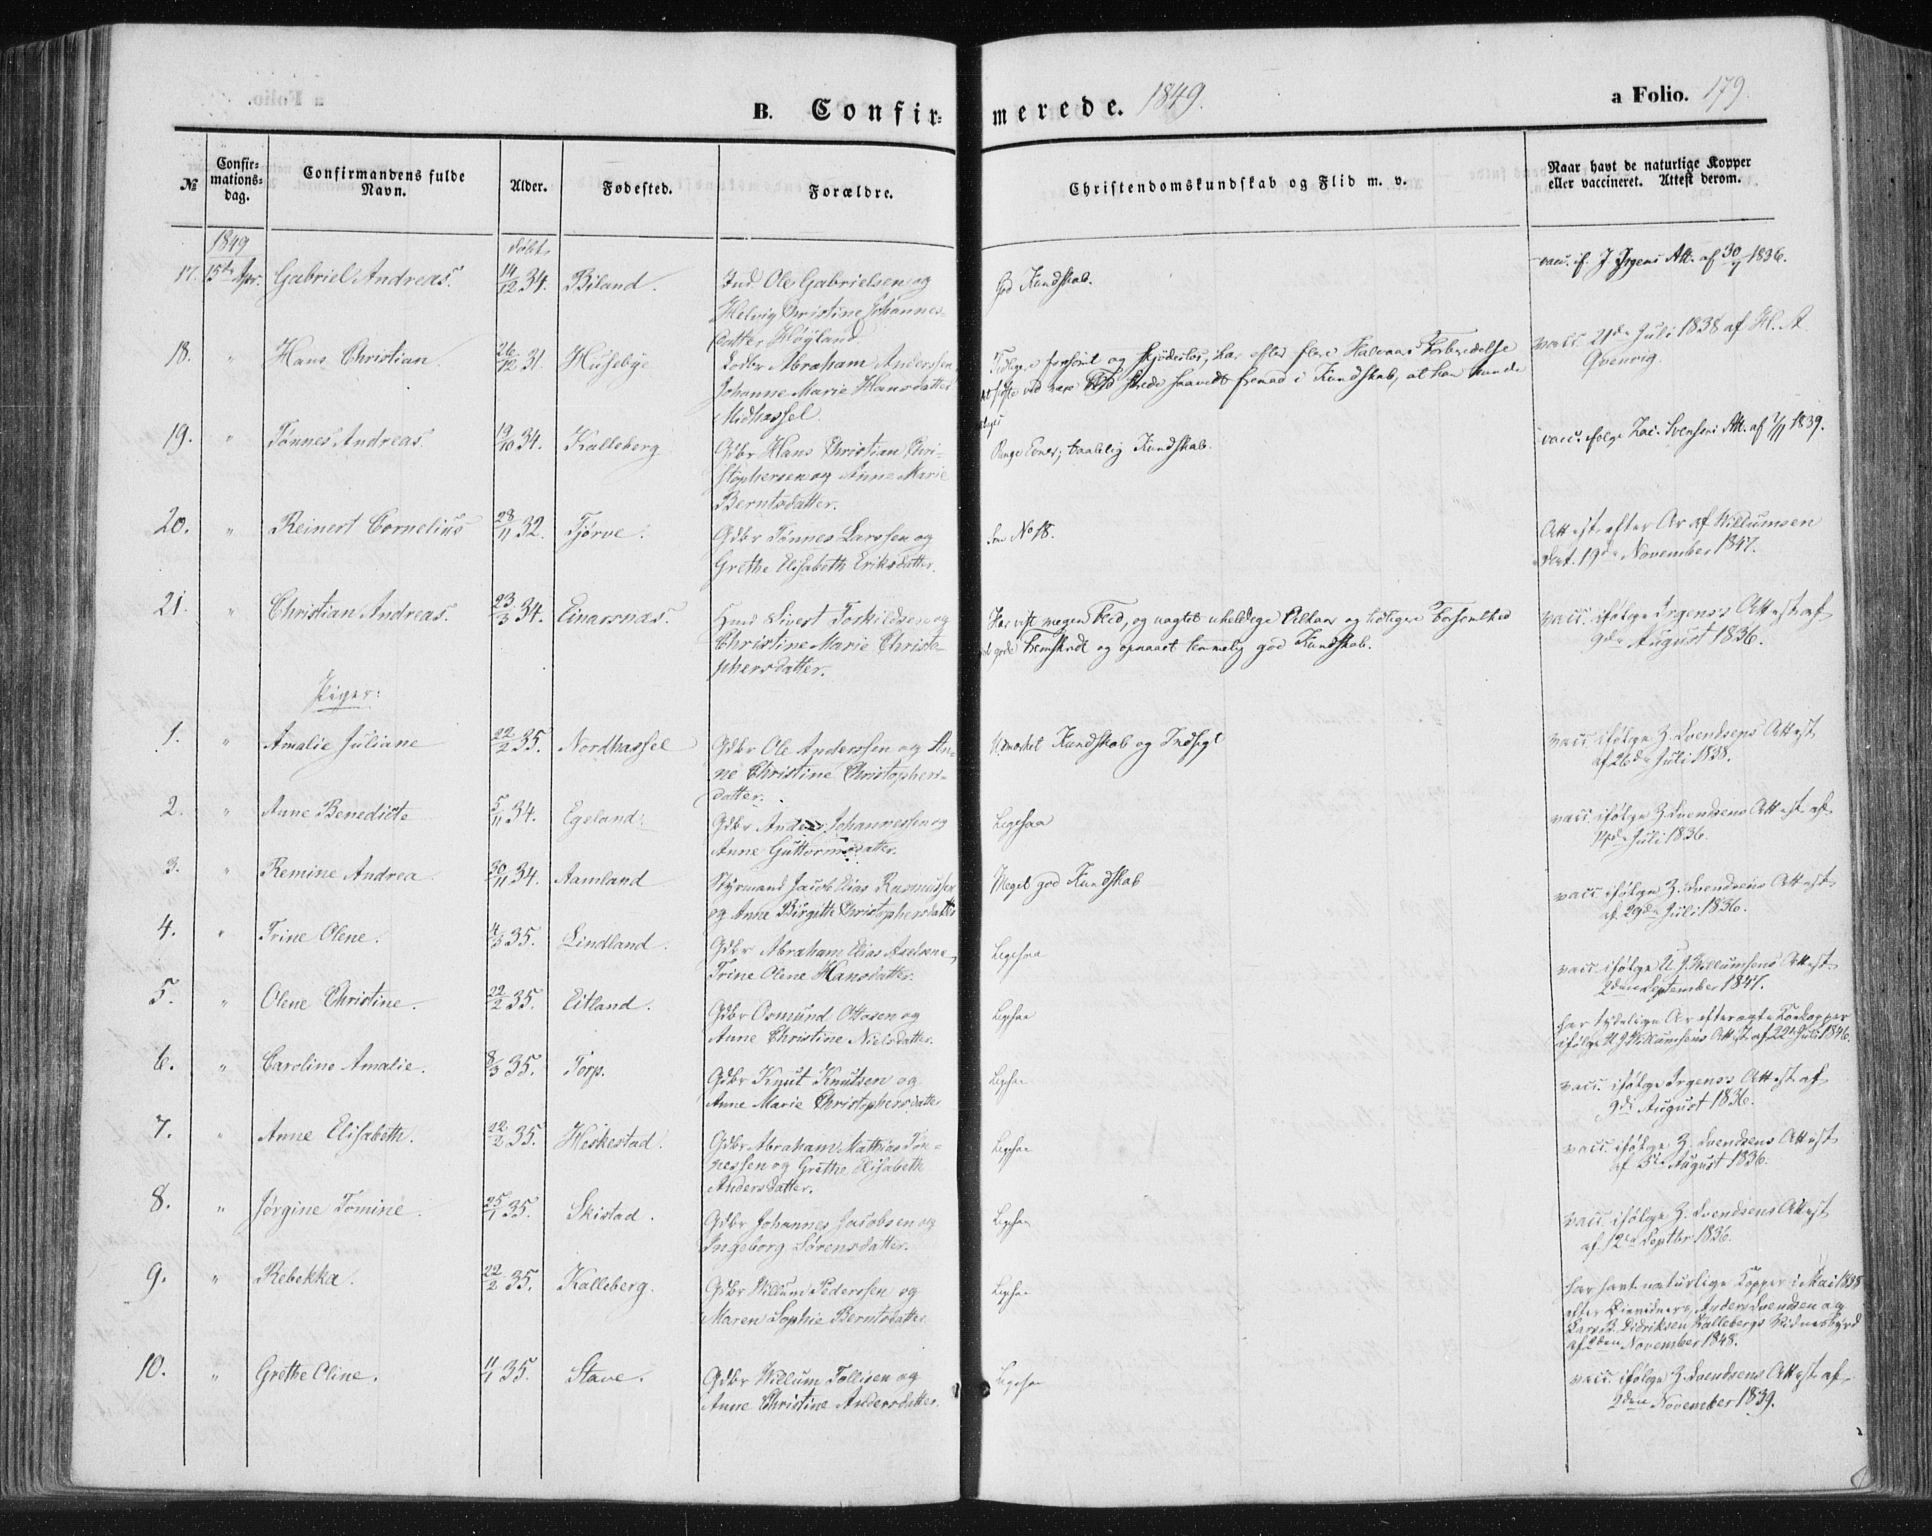 B. Confir-
merede. 1849.
a Folio. 179
№
Confir-
mations-
dag.
Confirmandens fulde
Navn.
Alder.
Fødested.
Forældre.
Christendomskundskab og Flid m. v.
Naar havt de naturlige Kopper
eller vaccineret. Attest derom.
1849 døbt
17. 15de Apr. Gabriel Andreas. 14/12 34. Biland. Ind. Ole Gabrielsen og
Helvig Christine Johannes-
datter Høyland
God Kundskab.
vacc. if. J Irgens Att. af 30/7 1836.
18. " Hans Christian 26/12 31 Husebye Abraham Anderssen
Johanne Marie Hansdatter
Midhassel.
Tidligere forsømt og har efter flere Halvaars Forberedelse
fremad i Kundskab, at han kunde
vacc. 21de Juli 1838 af H. A.
Qvenvig.
19. " Tønnes Andreas. 19/10 34. Kalleberg Gdbr Hans Christian Chri-
stophersen og Anne Marie
Berntsdatter.
Ringe Evner; taalelig Kundskab.
vacc. ifølge Zac. Svensens Att. af 1839.
20. " Reinert Cornelius 28/11 32. Tjørve. Gdbr Tønnes Larssen og
Grethe Elisabeth Eriksdatter.
som No 18.
Attest efter Ar af Willumsen
dat. 19de November 1847.
21. " Christian Andreas. 23/3 34. Einarsnæs. Sivert Torkildsen og
Christine Marie Christo-
phersdatter.
Har vist megen Flid, og uagtet uheldige Vilkaar og tidligere Forsømthed
gode Fremskridt og opnaaet temmelig god Kundskab.
vacc. ifølge Irgens's Attest af
9de August 1836.
Piger:
1. " Amalie Juliane 22/2 35. Nordhassel Gdbr Ole Anderssen og An-
ne Christine Christophers-
datter.
Udmærket Kundskab og Indsigt
vacc. ifølge Z. Svendsens Attest
af 26de Juli 1838.
2. " Anne Benedicte 5/11 34. Egeland. Gdbr Anders Johannessen og
Anne Guttormsdatter.
Ligesaa
vacc. ifølge Z. Svendsens Attest af
14de Juli 1836.
3. " Remine Andrea 30/11 34. Aamland Styrmand Jacob Elias Rasmussen
og Anne Birgitte Christophersdatter
Meget god Kundskab
vacc. ifølge Z. Svendsens Attest
af 29de Juli 1836.
4. " Trine Olene. 4/3 35. Lindland. Gdbr Abraham Elias Axelsen
Trine Olene Hansdatter.
Ligesaa
vacc. ifølge U J. Willumsens Attest
2den September 1847.
5. " Olene Christine. 22/2 35. Eitland. Gdbr Osmund Ottosen og
Anne Christine Nielsdatter.
Ligesaa
har tydelige Ar efter ægte Koekopper
ifølge U J Willumsens Attest af 22de Juli 1846.
6. " Caroline Amalie. 8/3 35. Torp. Gdbr Knut Knutsen og
Anne Marie Christophersdatter
Ligesaa
vacc. ifølge Irgens's Attest af
9de August 1836.
7. " Anne Elisabeth. 22/2 35. Heskestad. Gdbr Abraham Mathias Tøn-
nessen og Grethe Elisabeth
Andersdatter.
Ligesaa
vacc. ifølge Z. Svendsens Attest
af 5te August 1836.
8. " Jørgine Tomine. 25/1 35. Skistad. Gdbr Johannes Jacobsen og
Ingeborg Sørensdatter.
Ligesaa
vacc. ifølge Z. Svendsens Attest
af 12te Septbr 1836.
9. " Rebekka. 22/2 35. Kalleberg. Gdbr Willum Pederssen og
Maren Sophie Berntsdatter
Ligesaa
har havt naturlige Kopper i Mai 1838
efter Anders Svendsen og
Lars B. Didriksen Kallebergs Vidnesbyrd
af 2den November 1848.
10. " Grethe Oline. 11/1 35. Stave. Gdbr Willum Tollisen og
Anne Christine Andersdatter.
Ligesaa
vacc. ifølge Z. Svendsens Attest af
2den November 1839.